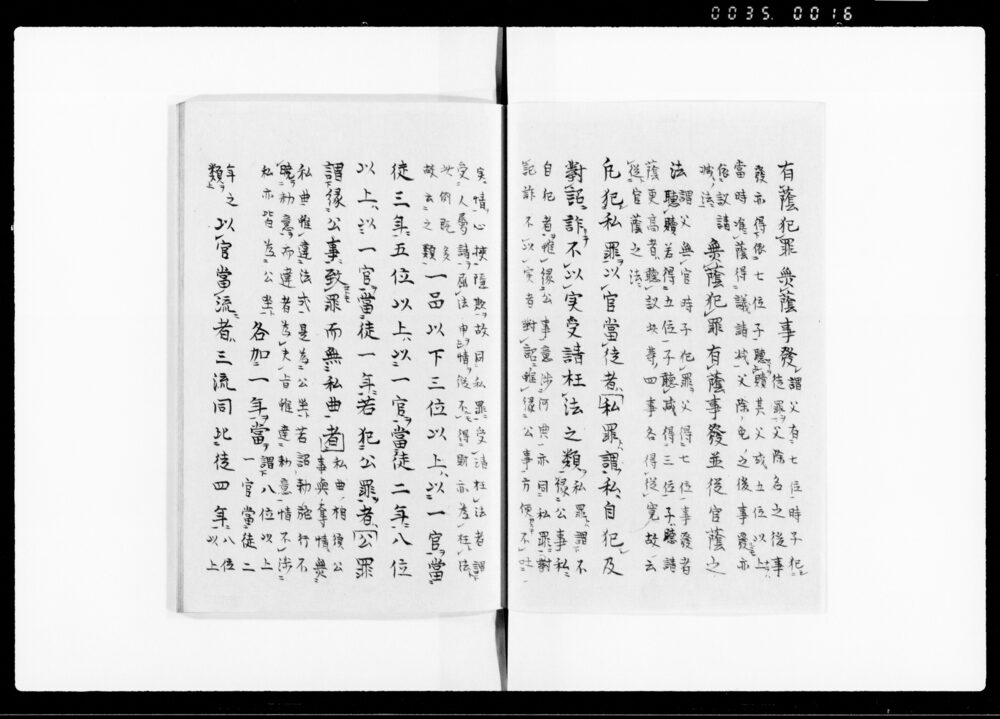 0035.0016
有蔭犯罪無蔭事發謂父有七位時子犯
徒罪父除名之後事
發亦得依七位子聽贖其父或五位以上
當時準蔭得議請減父除免之後事發亦
依議請
減法無蔭犯罪有蔭事發並從官蔭之
法謂父無官時子犯罪父得七位事發者
聽贖若得五位子聽減得三位子聽請
蔭更高者聽議此等四事各得從寛故云
從官蔭之法
凡犯私罪以官當徒者私罪謂私自犯及
對詔詐不以実受請枉法之類私罪謂不
縁公事私
自犯者雖縁公事意渉阿典亦同私罪對
詔詐不以実者對詔雖縁公事方便不吐
実情心挾隠欺故同私罪受請枉法者謂
受人屬請屈法申情縱不得財亦為枉法
此例既多
故云之類一品以下三位以上以一官當
徒三年五位以上以一官當徒二年八位
以上以一官當徒一年若犯公罪者公罪
謂縁公事致罪而無私曲者私曲相須公
事與奪情無
私曲雖違法式是為公坐若詔勅施行不
曉勅意而違者為失旨雖違勅意情不渉
私亦皆為公坐各加一年當謂八位以上
一官當徒二
年之
類以官當流者三流同比徒四年八位
以上